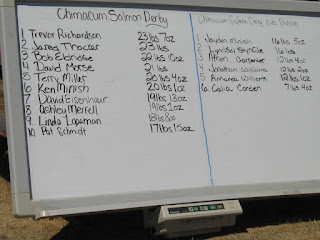 Chimacum Salmon Derby
1 Trevor Richardson 23lbs 7oz
2 Jared Thacker 23lbs
3 Bob Elbridge 22lbs 10oz
4 David Morse 21lbs
5 Terry Miller 20lbs 4oz
6 Ken Minish 20lbs 1oz
7 David Eisenhour 19lbs 13oz
8 Ashley Merrell 19lbs 1oz
9 Linda Logsman 18lbs
10 Pat Schmidt 17lbs 15oz
Chimacum Salmon Derby Kids Division
1 Jayden Minish 16lbs 5oz
2 Lyndsey
3 Carpenter 12lbs 4oz
4 Jonathan Williams 12lbs 2oz
5 Amanda Williams 12lbs 1oz
6 Calia Corsen 7lbs 4oz